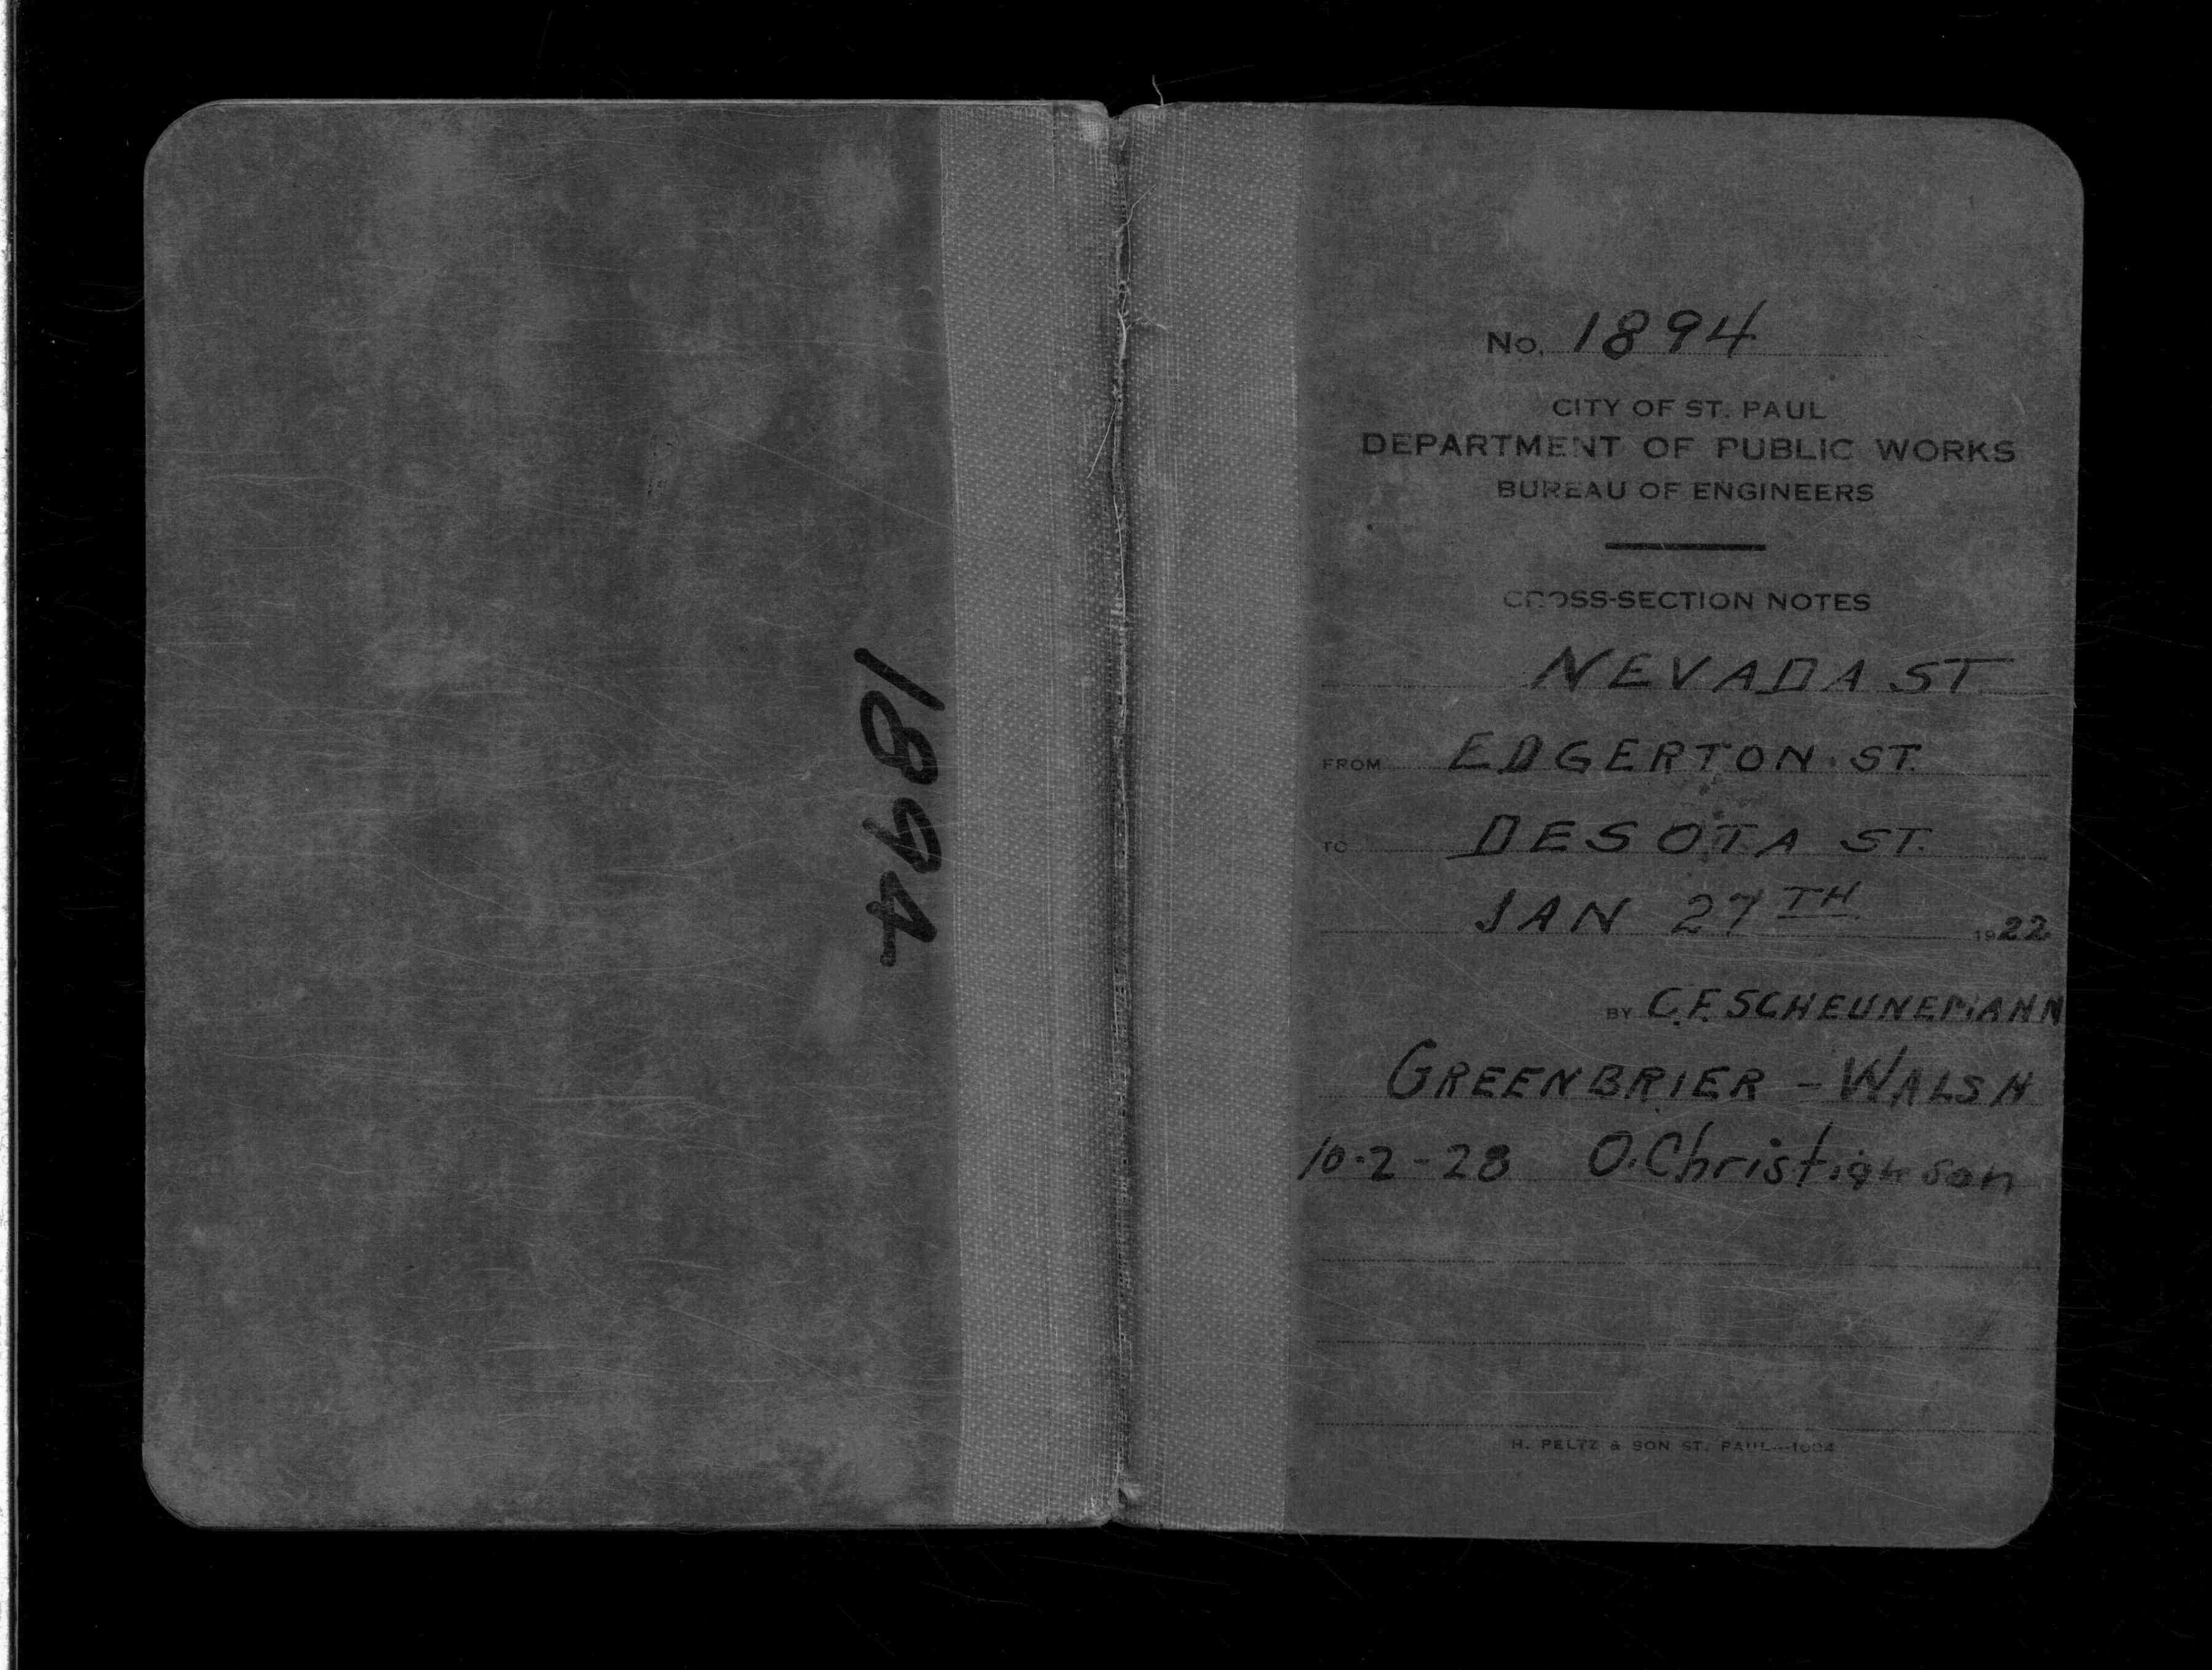 1894
No. 1894
CITY OF ST. PAUL
DEPARTMENT OF PUBLIC WORKS
BUREAU OF ENGINEERS
CROSS-SECTION NOTES
NEVADA ST
FROM EDGERTON ST.
TO DESOTA ST.
JAN 27TH 1922
BY C.F. SCHEUNEMANN
GREENBRIER - WALSH
10-2-28 O. Christianson
H. PELTZ & SON ST. PAUL